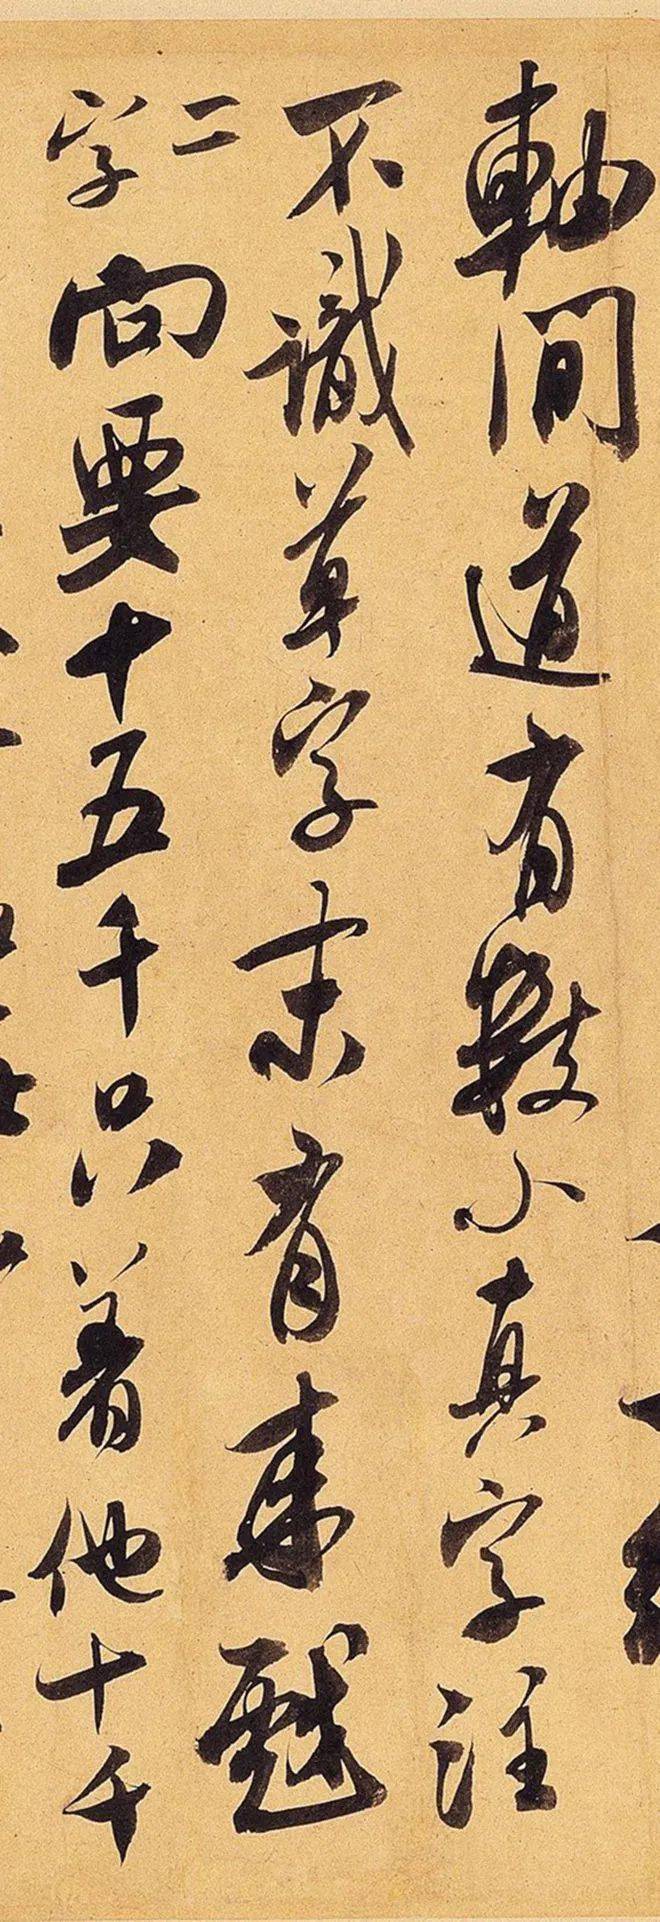 軸間道有數小真字注
不識草字末有來戲
二字向要十五千只着他十千